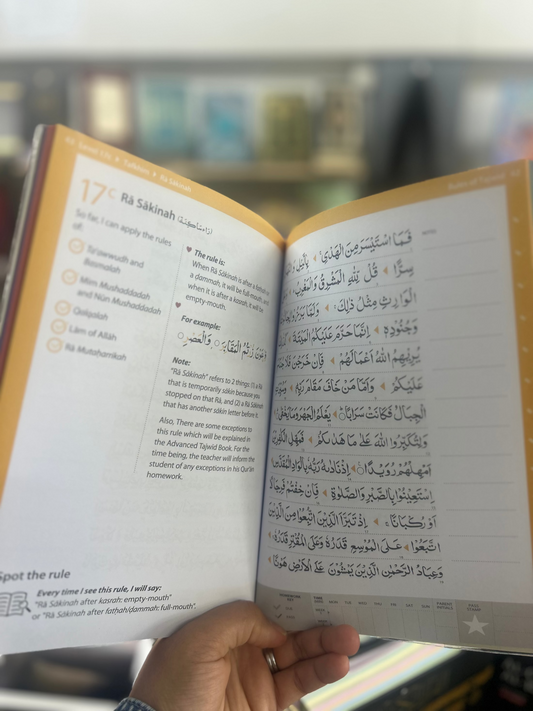 17c Rā Sākinah
So far, I can apply the rules
of:
Isti'aadhah and
Basmalah
Mīm Mushaddadah
and Nūn Mushaddadah
Qalqalah
Lām of Allāh
Rā Mutaḥarrikah
The rule is:
When Rā Sākinah is after a fatḥah or
a ḍammah, it will be full-mouth, and
when it is after a kasrah, it will be
empty-mouth.
For example:
Note:
"Rā Sākinah" refers to 2 things: (1) a Rā
that is temporarily sākin because you
stopped on that Rā, and (2) a Rā Sākinah
that has another sākin letter before it.
Also, There are some exceptions to
this rule which will be explained in
the Advanced Tajwīd Book. For the
time being, the teacher will inform the
student of any exceptions in his Qur'ān
homework.
Spot the rule
Every time I see this rule, I will say:
"Rā Sākinah after kasrah: empty-mouth"
or "Rā Sākinah after fatḥah/ḍammah: full-mouth".
Rules of Tajwīd
فَمَا اسْتَيْسَرَ مِنَ الْهَدْيِ
قُلْ لِلّٰهِ الْمَشْرِقُ وَالْمَغْرِبُ
مِثْلُ ذٰلِكَ
وَجُنُودِهٖ ۞ اِنَّمَا حَرَّمَ عَلَيْكُمُ الْمَيْتَةَ
يُرِيْهِمُ اللّٰهُ اَعْمَالَهُمْ ۞ فَاِنْ خَرَجْنَ فَلَا
عَلَيْكُمْ ۞ وَاَمَّا مَنْ خَافَ مَقَامَ رَبِّهٖ
الْجِبَالُ فَكَانَتْ سَرَابًا ۞ يَعْلَمُ الْجَهْرَ وَمَا يَخْفٰى
وَلِتُكَبِّرُوا اللّٰهَ عَلٰى مَا هَدٰىكُمْ ۞ فَمَهِّلِ الْكٰفِرِيْنَ
اَمْهِلْهُمْ رُوَيْدًا ۞ اِذْ نَادٰىهُ رَبُّهٗ بِالْوَادِ الْمُقَدَّسِ
اسْتَعِيْنُوْا بِالصَّبْرِ وَالصَّلٰوةِ ۞ فَاِنْ خِفْتُمْ فَرِجَالًا
اَوْ رُكْبَانًا ۞ اِذْ تَبَرَّاَ الَّذِيْنَ اتُّبِعُوْا مِنَ الَّذِيْنَ
اتَّبَعُوْا ۞ عَلَى الْمُوْسِعِ قَدَرُهٗ وَعَلَى الْمُقْتِرِ قَدَرُهٗ
وَعِبَادُ الرَّحْمٰنِ الَّذِيْنَ يَمْشُوْنَ عَلَى الْاَرْضِ هَوْنًا